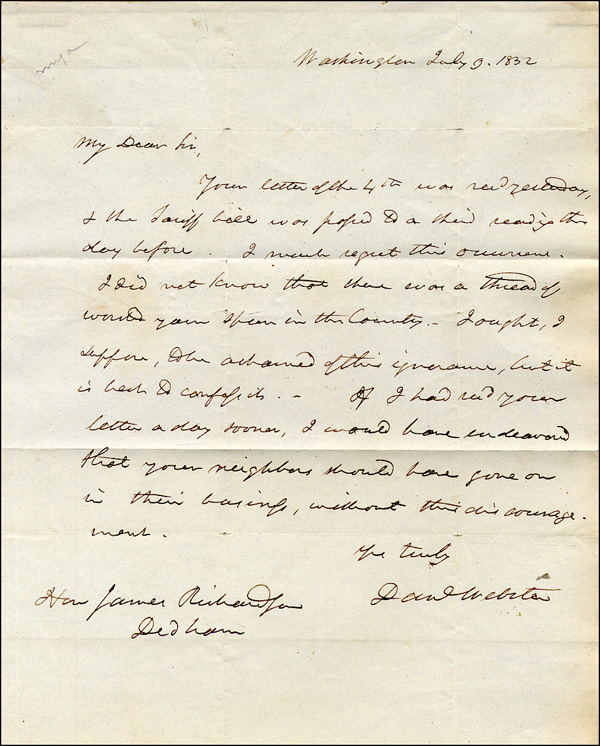 Washington July 9. 1832
My Dear Sir,
Your letter of the 4th was recd yesterday,
& the Tariff bill was passed to a third reading the
day before. I much regret this occurrence.
I did not know that there was a thread of
worsted yarn spun in the County. - I ought, I
suppose, to be ashamed of this ignorance, but it
is best to confess it. - If I had recd your
letter a day sooner, I would have endeavored
that your neighbors should have gone on
in their business, without this discourage-
ment.
Yrs truly
Danl Webster
Hon James Richardson
Dedham